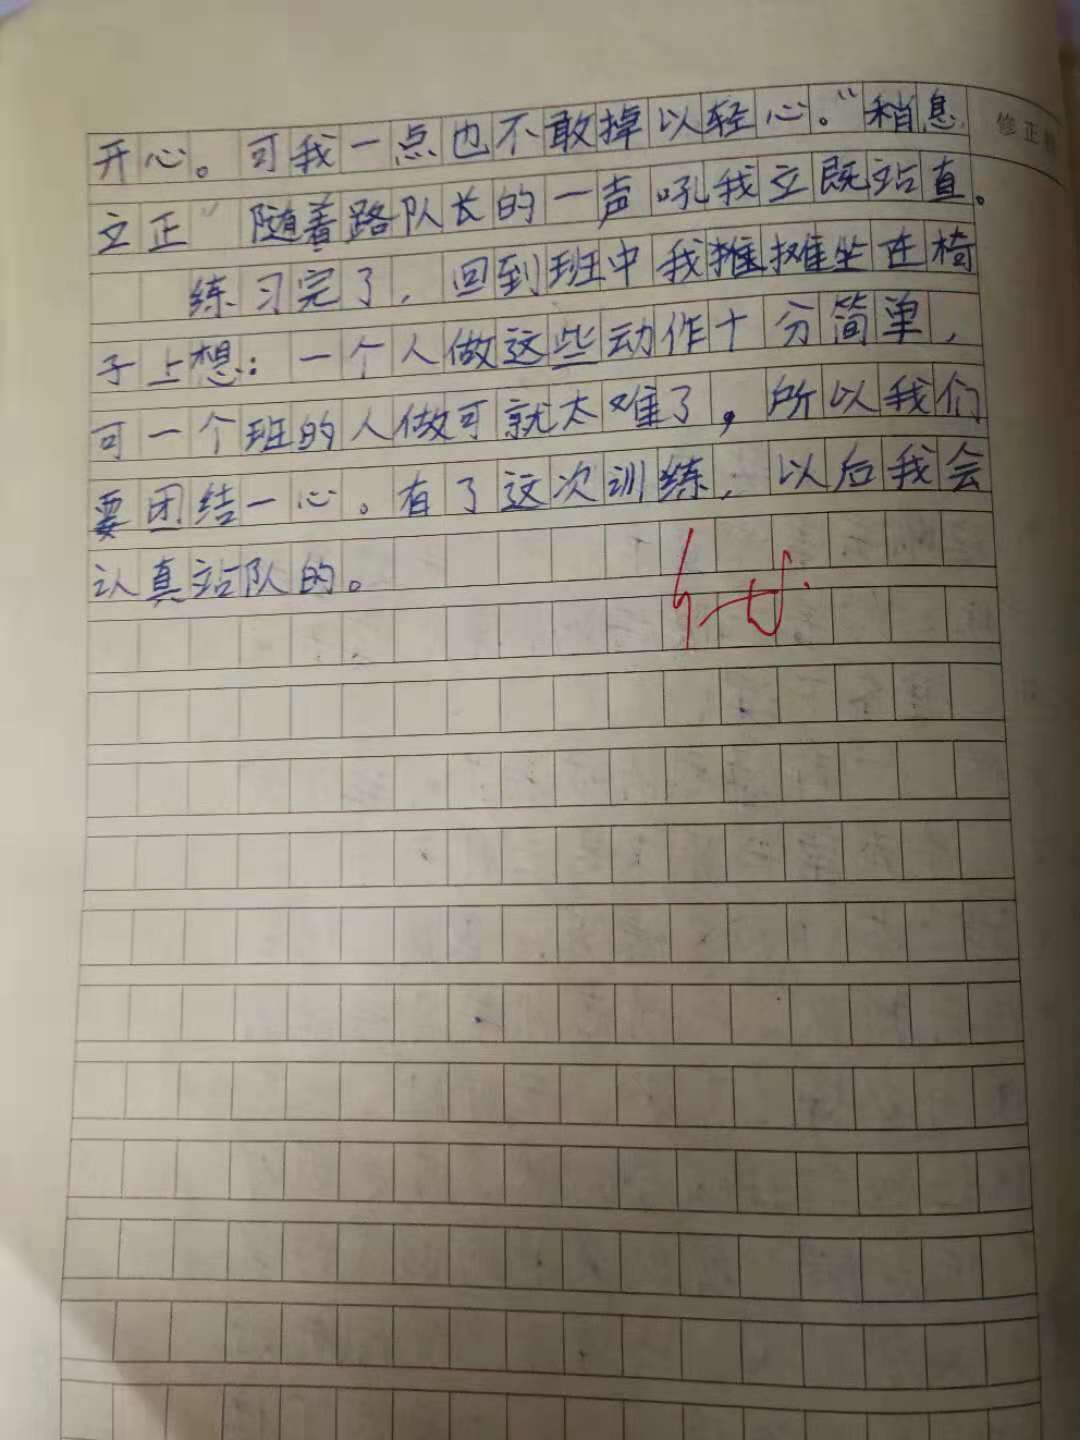 开心。可我一点也不敢掉以轻心。“稍息
立正”随着路队长的一声吼我立既站直。
练习完了，回到班中我摊摊坐在椅
子上想：一个人做这些动作十分简单，
可一个班的人做可就太难了，所以我们
要团结一心。有了这次训练，以后我会
认真站队的。
修正